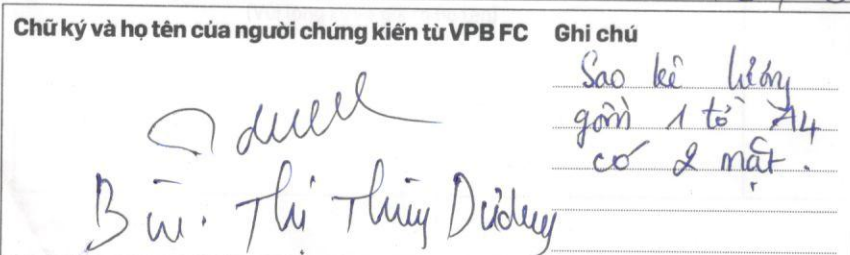 Chữ ký và họ tên của người chứng kiến từ VPB FC
Bùi Thị Thùy Dương
Ghi chú
Sao kê lương
gồm 1 tờ A4
có 2 mặt.